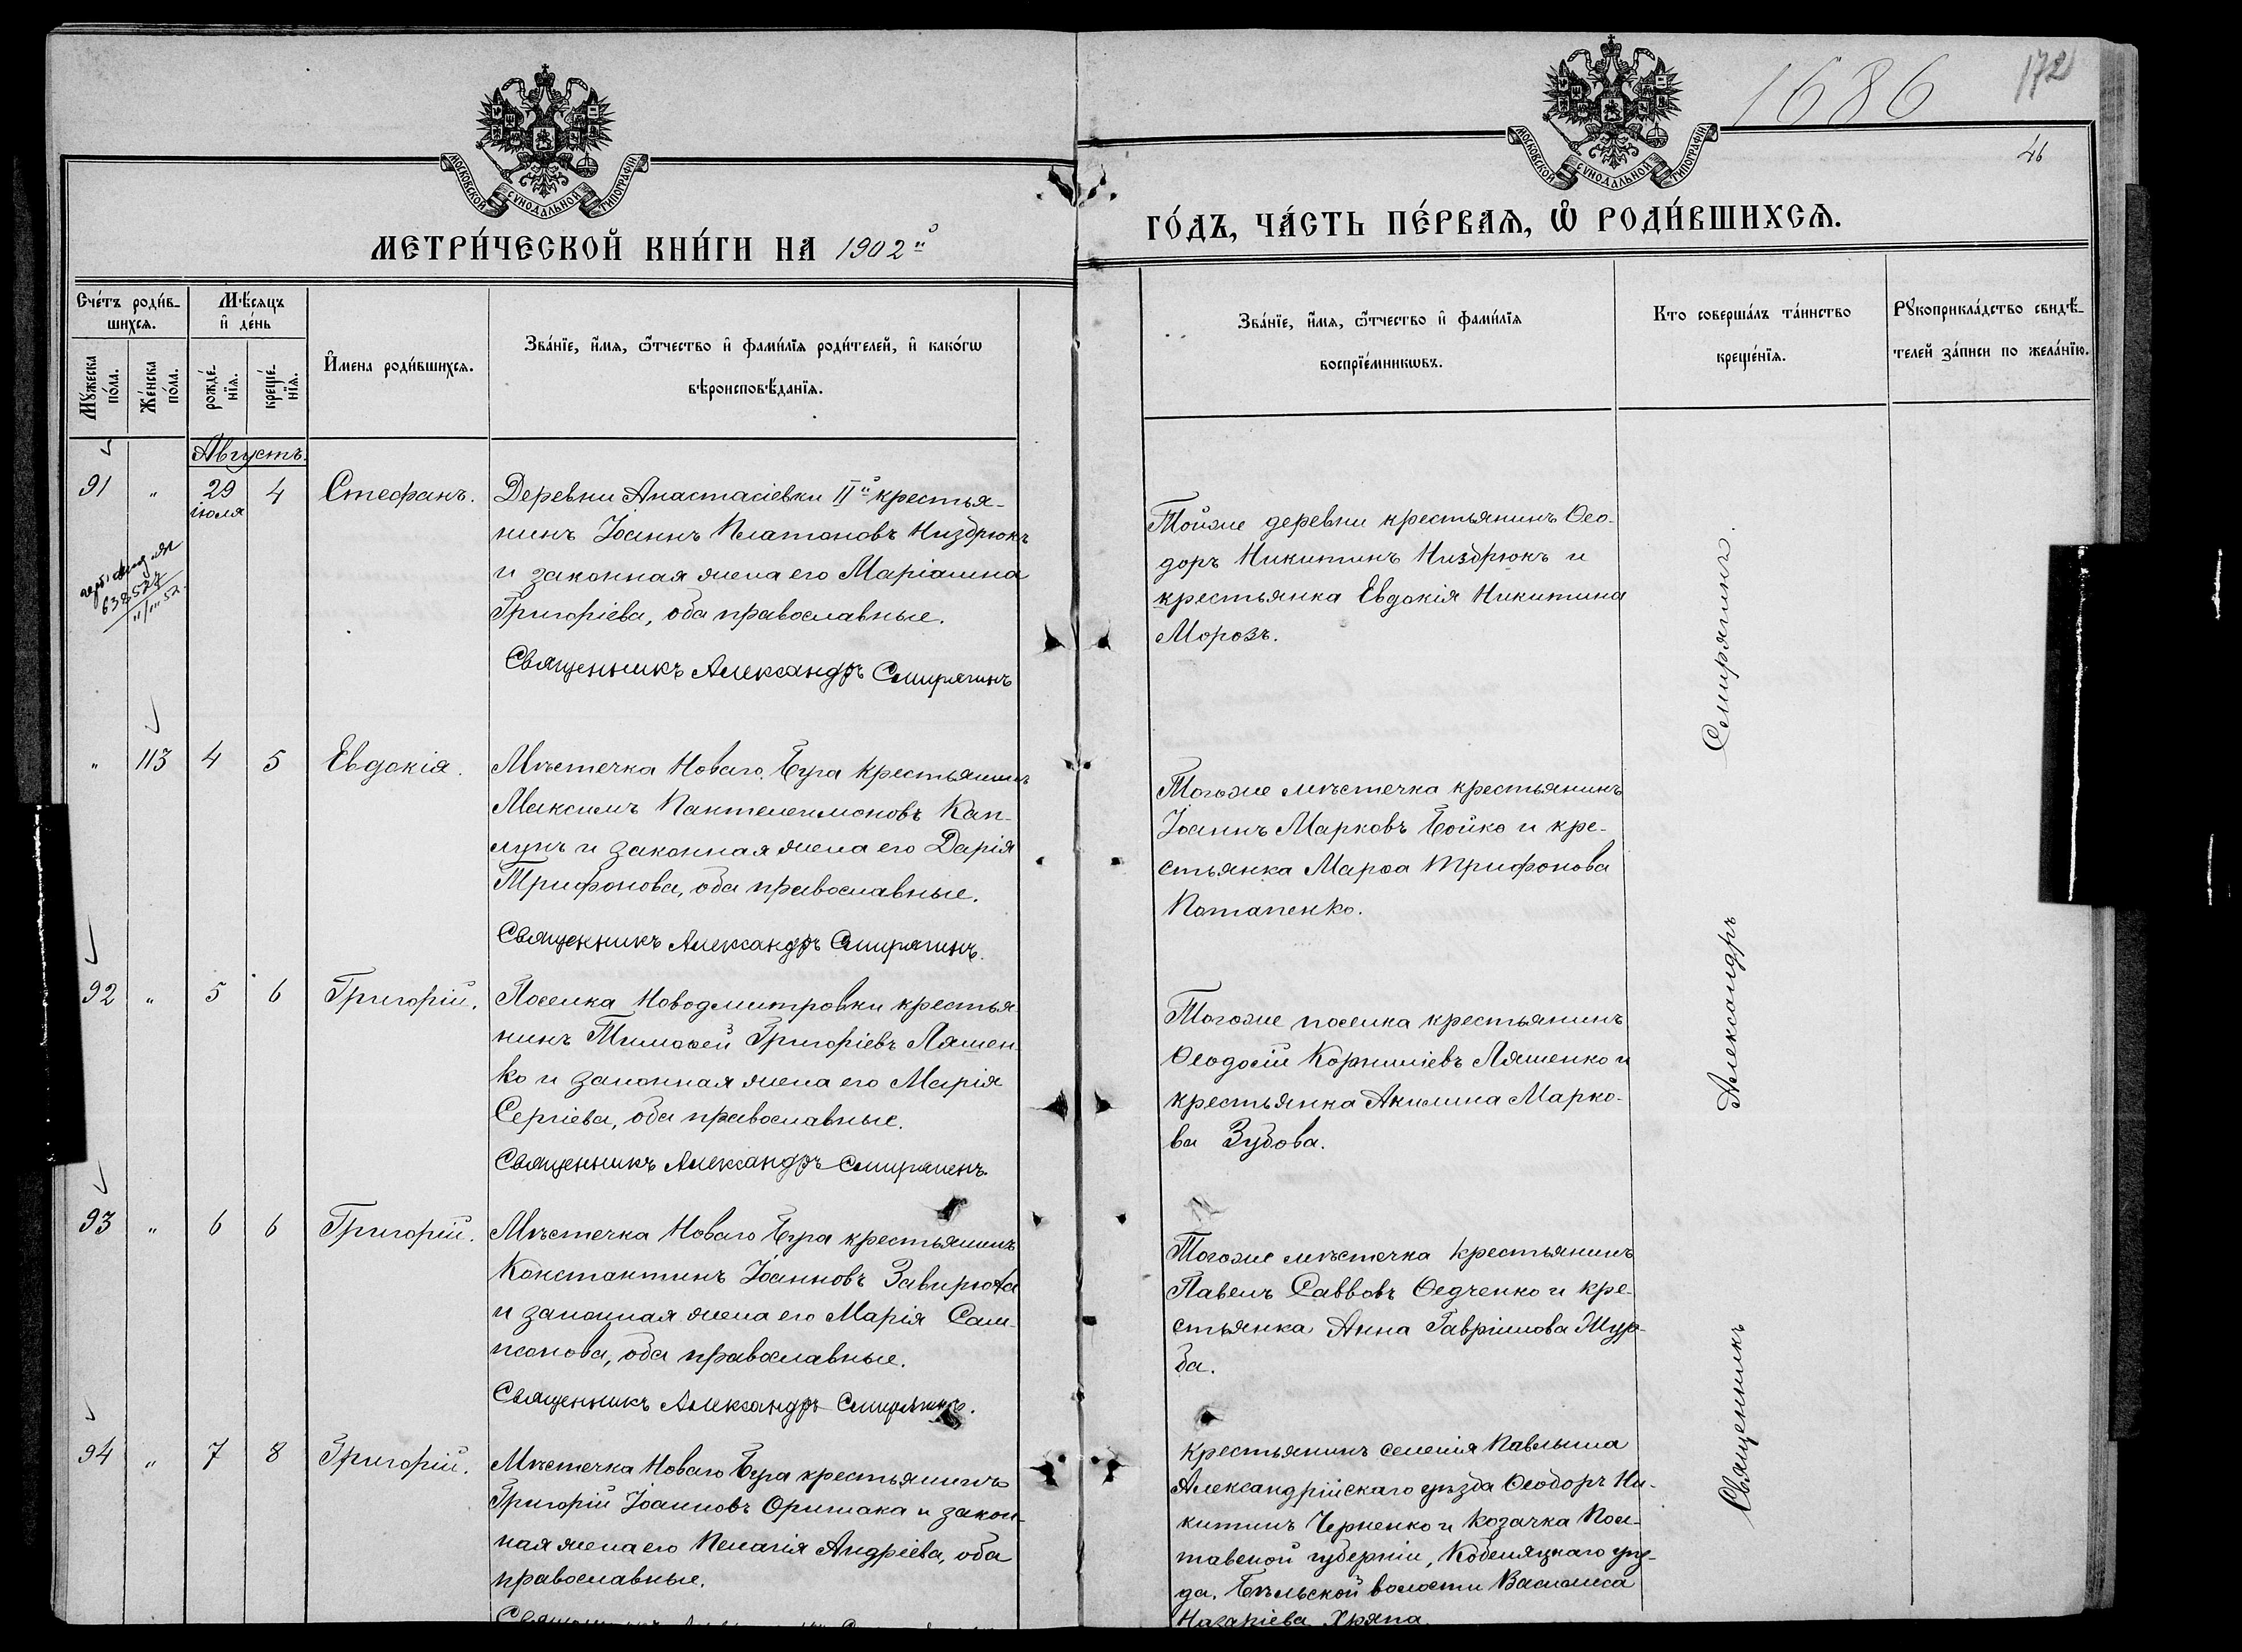 1686
172
46
МОСКОВСКОЙ СѴНОДАЛЬНОЙ ТИПОГРАФІИ
МОСКОВСКОЙ СѴНОДАЛЬНОЙ ТИПОГРАФІИ
МЕТРИ́ЧЕСКОЙ КНИ́ГИ НА 1902й
ГО́ДЪ, ЧА́СТЬ ПЕ́РВАѦ, Ѡ РОДИ́ВШИХСѦ.
Сче́тъ роди́в-
шихсѧ.
Мѣ́сяцъ
и҆ де́нь
Мꙋжеска по́ла.
Же́нска по́ла.
рожде́-
нїѧ.
креще́-
нїѧ.
И҆мена роди́вшихсѧ.
Зва́нїе, и҆́мѧ, ѻ҆́тчество и҆ фами́лїѧ роди́телей, и҆ како́гѡ
вѣроисповѣ́данїѧ.
Зва́нїе, и҆́мѧ, ѻ҆́тчество и҆ фами́лїѧ
воспрїе́мникѡвъ.
Кто соверша́лъ та́инство
креще́нїѧ.
Рꙋкоприкла́дство свидѣ́-
телей за́писи по жела́нїю.
Августъ.
91 " 29 іюля 4 Стефанъ.
Деревни Анастасіевки IIй крестья-
нинъ Іоаннъ Платоновъ Низдрюкъ
и законная жена его Маріамна
Григоріева, оба православные.
Священникъ Александръ Смирягинъ
Тойже деревни крестьянинъ Ѳео-
доръ Никитинъ Низдрюкъ и
крестьянка Евдокія Никитина
Морозъ.
" 113 4 5 Евдокія.
Мѣстечка Новаго Буга крестьянинъ
Максимъ Пантелеимоновъ Кап-
лунъ и законная жена его Дарія
Трифонова, оба православные.
Священникъ Александръ Смирягинъ.
Тогоже мѣстечка крестьянинъ
Іоаннъ Марковъ Бойко и кре-
стьянка Марѳа Трифонова
Потапенко.
92 " 5 6 Григорій.
Поселка Новодмитровки крестья-
нинъ Тимоѳей Григоріевъ Ляшен-
ко и законная жена его Марія
Сергіева, оба православные.
Священникъ Александръ Смирягинъ.
Тогоже поселка крестьянинъ
Ѳеодосій Корниліевъ Ляшенко и
крестьянка Акилина Марко-
ва Зубова.
93 " 6 6 Григорій.
Мѣстечка Новаго Буга крестьянинъ
Константинъ Іоанновъ Завирюха
и законная жена его Марія Сам-
псонова, оба православные.
Священникъ Александръ Смирягинъ.
Тогоже мѣстечка крестьянинъ
Павелъ Саввовъ Ѳедченко и кре-
стьянка Анна Гавріилова Жур-
ба.
94 " 7 8 Григорій.
Мѣстечка Новаго Буга крестьянинъ
Григорій Іоанновъ Оришака и закон-
ная жена его Пелагія Андріева, оба
православные.
Крестьянинъ селенія Павлыша
Александрійскаго уѣзда Ѳеодоръ Ни-
китинъ Черненко и козачка Пол-
тавской губерніи, Кобеляцкаго уѣз-
да, Бѣльской волости Василиса
Назаріева Хряпа.
Священникъ Александръ Смирягинъ.